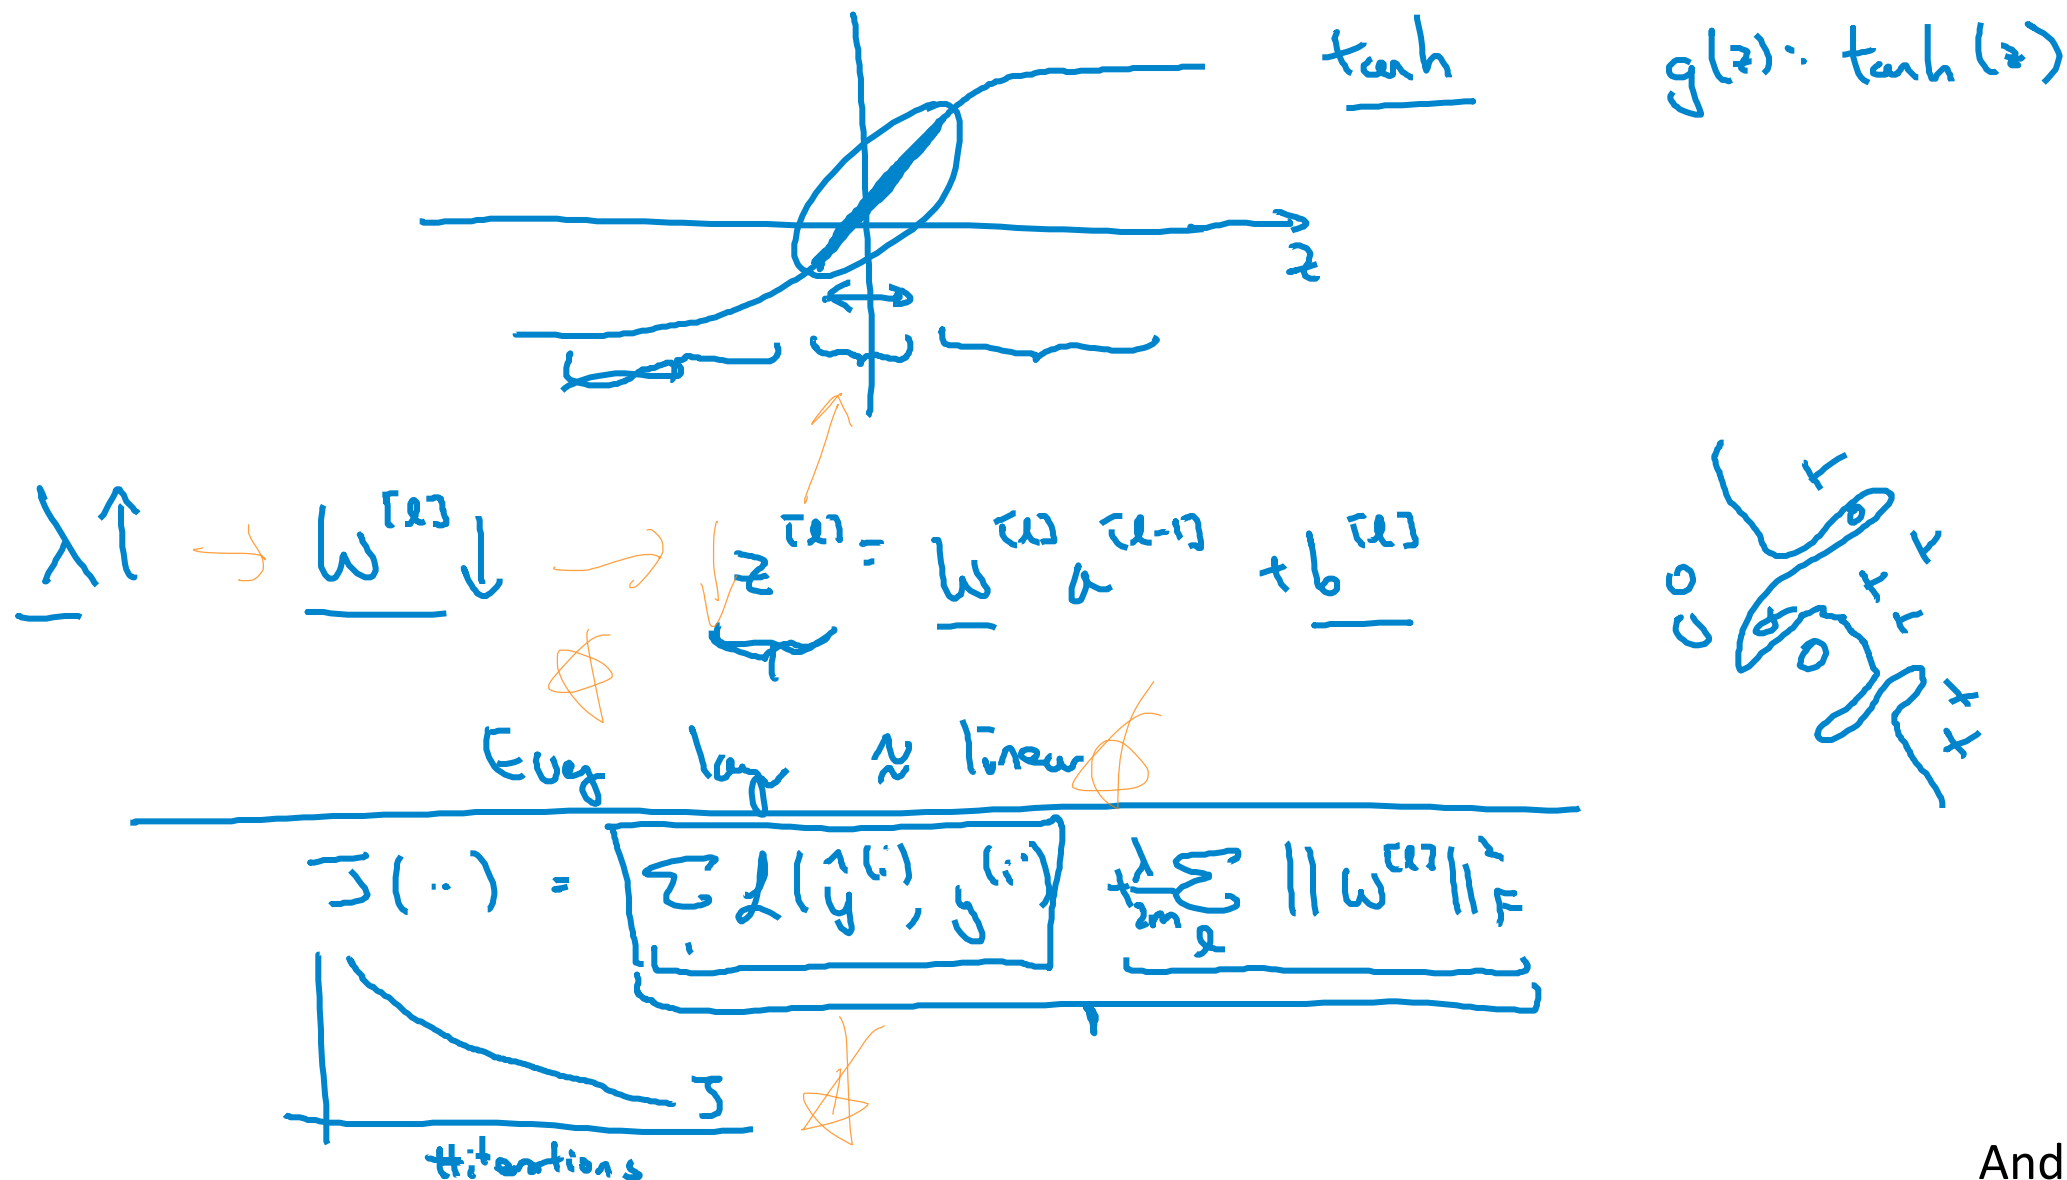 tanh g(z) = tanh(z)
z
λ↑ → W^[l]↓ → ↓ z^[l] = W^[l] a^[l-1] + b^[l]
Every layer ≈ linear
J(··) = Σ_i L(ŷ^(i), y^(i)) + λ/2m Σ_l ||W^[l]||²_F
J
#iterations
And